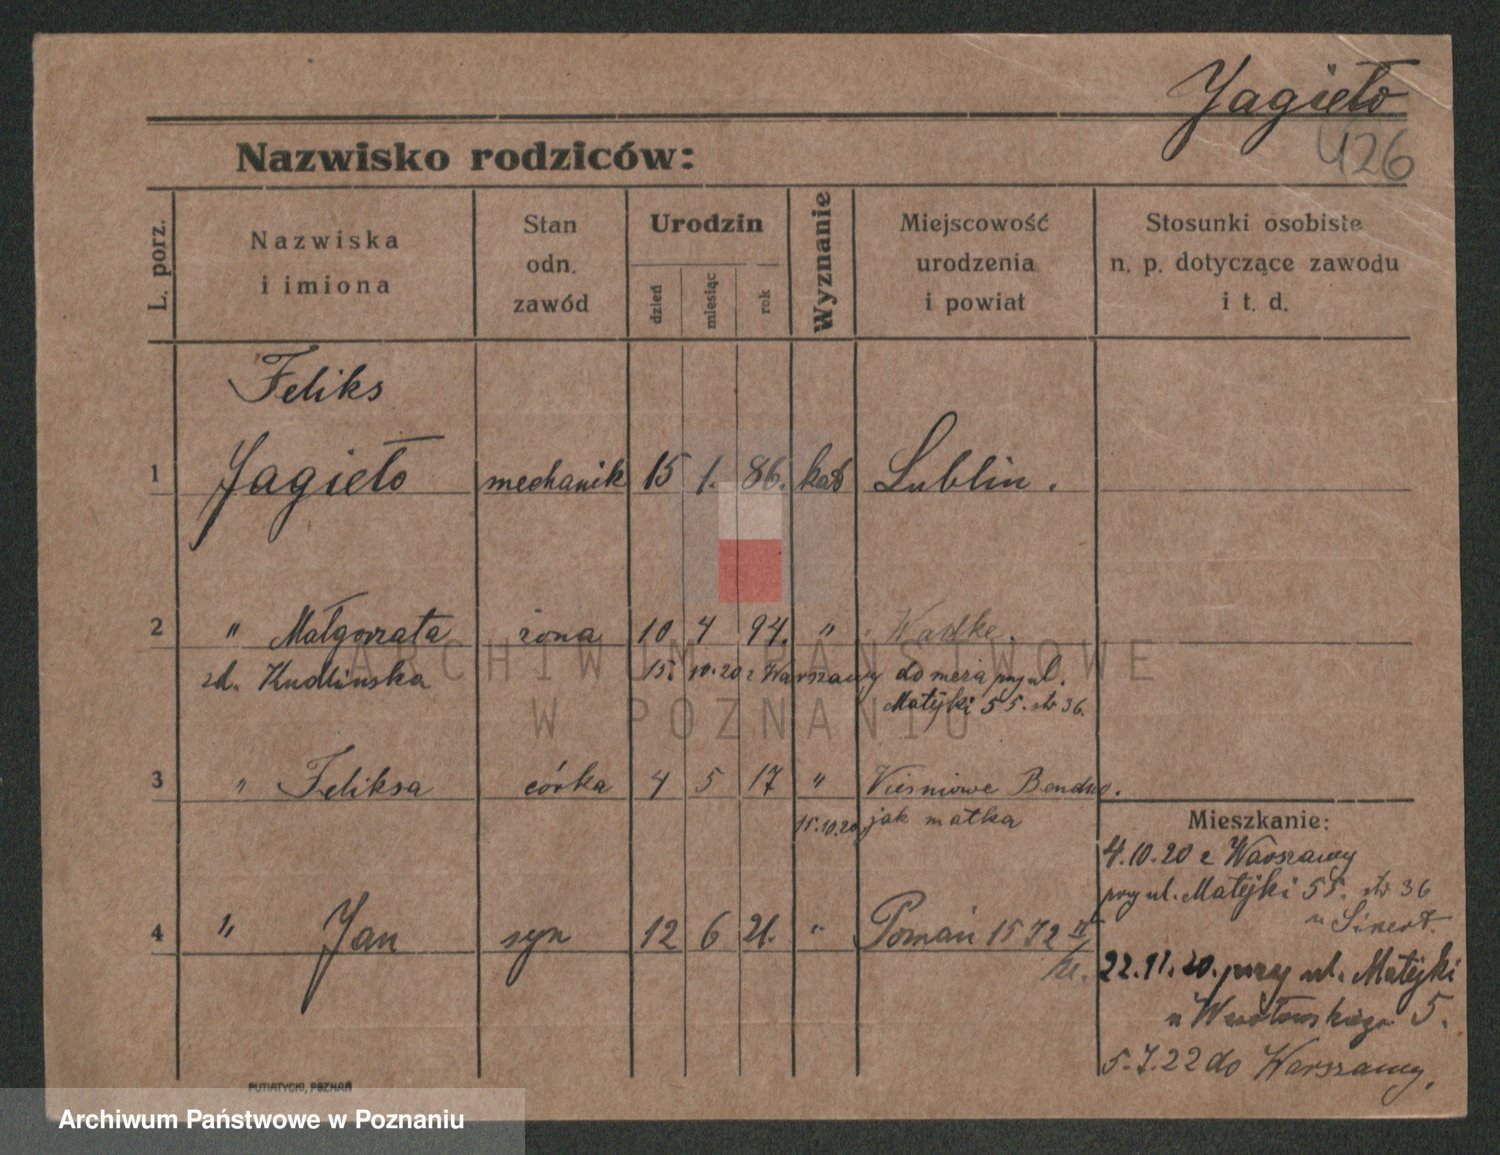 Jagieło
426
Nazwisko rodziców:
L. porz.
Nazwiska
i imiona
Stan
odn.
zawód
Urodzin
dzień
miesiąc
rok
Wyznanie
Miejscowość
urodzenia
i powiat
Stosunki osobiste
n. p. dotyczące zawodu
i t. d.
Feliks
1 Jagieło mechanik 15 1. 86. kat Lublin.
2 " Małgorzata żona 10 4 94. "
zd. Kudlinska 15. 10.20 z Warszawy do męża przy ul.
Matejki 55. str 36.
3 " Feliksa córka 4 5 17 "
15.10.20 jak matka
Mieszkanie:
4.10.20 z Warszawy
przy ul. Matejki 55. str 36
u
4 " Jan syn 12 6 21. " Poznań 1572
22.11.20. przy ul. Matejki
u 5.
5.7.22 do Warszawy.
PUTIATYCKI, POZNAŃ
ARCHIWUM PAŃSTWOWE
W POZNANIU
Archiwum Państwowe w Poznaniu